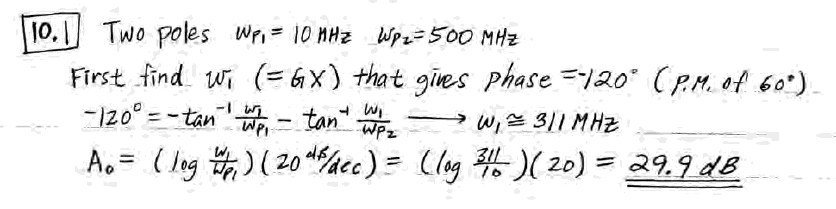 10.1 Two poles ωp₁ = 10 MHz ωp₂=500 MHz
First find ω₁ (= GX) that gives phase =-120° (P.M. of 60°)
-120° = -tan⁻¹ ω₁/ωp₁ - tan⁻¹ ω₁/ωp₂ → ω₁ ≅ 311 MHz
A₀ = (log ω₁/ωp₁)(20 dB/dec) = (log 311/10)(20) = 29.9 dB